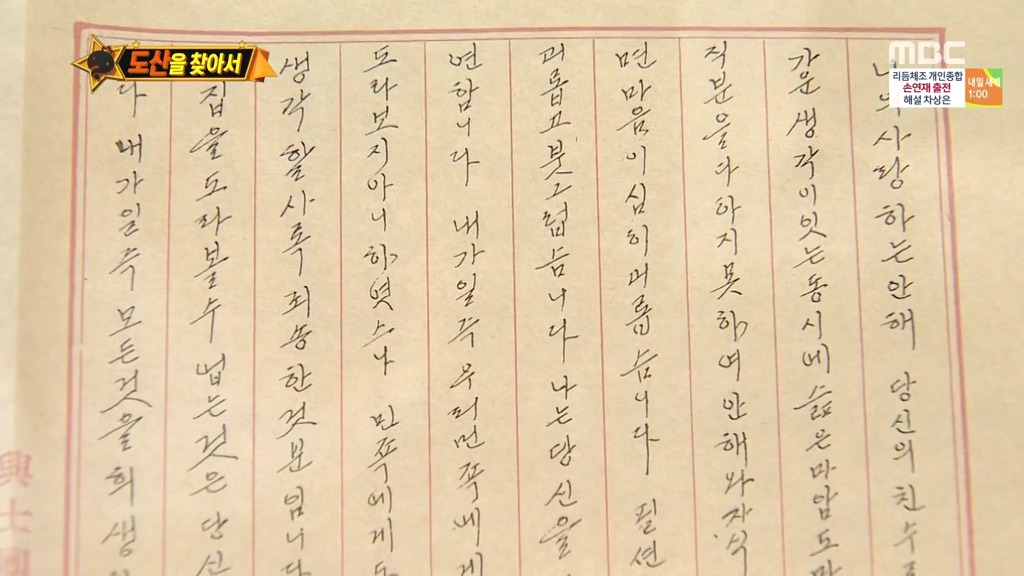 도산을 찾아서
MBC
리듬체조 개인종합
손연재 출전
해설 차상은
내일 새벽
1:00
사랑하는안해 당신의친수로
가운생각이잇는동시에 슯은마암도마
직분을다하지못하여안해와자식
면마음이심히괴롭습니다 필연
괴롭고붓그럽습니다 나는당신을
면함니다 내가일즉우리민족에게
도라보지아니하엿스나 민족에게도
생각할사록죄송한것분임니다
집을도라볼수 업는것은단신
다 내가일즉모든것을희생
興士團